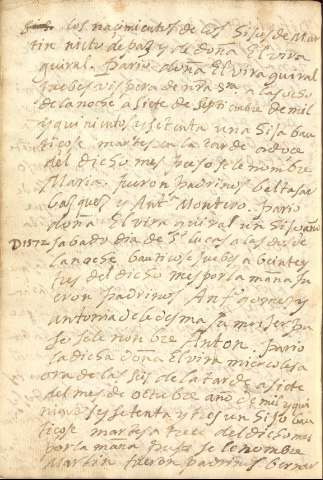 los nacimientos de los hijos de mar
tin nieto de paz y de doña Elvira
quiral. Pario doña Elvira quiral
juebes vispera de nra sra a las ocho
de la noche a siete de septiembre de mil
y quinientos y setenta una hija bau
ticose martes en la tarde a doce
del dicho mes pusose le nombre
Maria. fueron padrinos baltasar
bazquez y Anta Montero. Pario
doña Elvira quiral un hijo año
D 1572 sabado dia de S. lucas a las dos de
la noche bauticose juebes a beinte y
tres del dicho mes por la mañana fu
eron padrinos Anto gomez y
antonia de ledesma su mujer pu
so se le nonbre Anton. Pario
la dicha doña Elvira miercoles a
ora de las seis de la tarde a siete
del mes de octubre año de mil y qui
nientos y setenta y tres un hijo bau
ticose martes a trece del dicho mes
por la mañana puso se le nombre
Martin fueron padrinos bernar